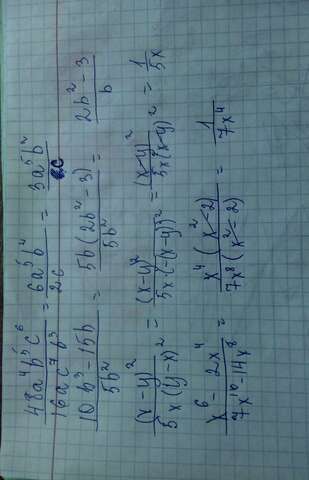 48a⁴b⁵c⁶/16ac⁷b³ = 6a⁵b²/2c = 3a⁵b²/c
10b³ - 15b/5b² = 5b(2b² - 3)/5b² = 2b² - 3/b
(x - y)²/5x(y - x)² = (x - y)²/5x·(-(x - y))² = (x - y)²/5x(x - y)² = 1/5x
x⁶ - 2x⁴/7x¹⁰ - 14x⁸ = x⁴(x² - 2)/7x⁸(x² - 2) = 1/7x⁴